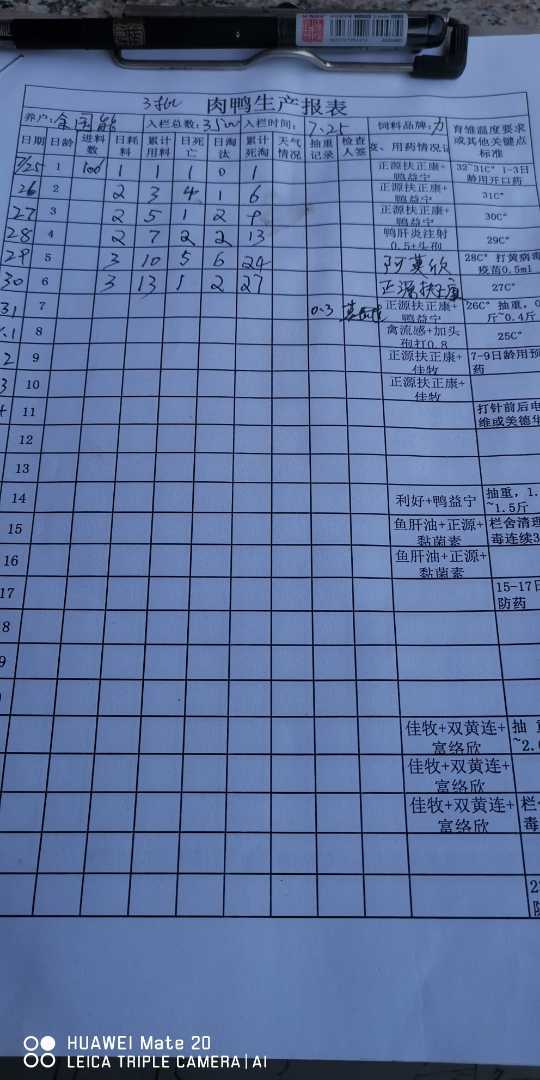 肉鸭生产报表
养户: 入栏总数: 3500 入栏时间: 7.25 饲料品牌: 力 育雏温度要求或其他关键点标准
日期 日龄 进料数 日耗料 累计用料 日死亡 日淘汰 累计死淘 天气情况 抽重记录 检查人签 用药情况
7/25 1 100 1 1 1 0 1 正源扶正康+鸭益宁 32~31C° 1-3日龄用开口药
26 2 2 3 4 1 6 正源扶正康+鸭益宁 31C°
27 3 2 5 1 2 9 正源扶正康+鸭益宁 30C°
28 4 2 7 2 2 13 鸭肝炎注射0.5+头孢 29C°
29 5 3 10 5 6 24 阿莫欣 28C° 打黄病毒疫苗0.5ml
30 6 3 13 1 2 27 正源扶正康 27C°
31 7 0.3 正源扶正康+鸭益宁 26C° 抽重，0 斤~0.4斤
.1 8 禽流感+加头孢打0.8 25C°
2 9 正源扶正康+佳牧 7-9日龄用预 药
3 10 正源扶正康+佳牧
11 打针前后电 维或美德华
12
13
14 利好+鸭益宁 抽重，1. ~1.5斤
15 鱼肝油+正源+黏菌素 栏舍清理 毒连续3
16 鱼肝油+正源+黏菌素
17 15-17日 防药
8
9
佳牧+双黄连+富络欣 抽重 ~2.
佳牧+双黄连+富络欣
佳牧+双黄连+富络欣 栏 毒
2 防
HUAWEI Mate 20
LEICA TRIPLE CAMERA | AI